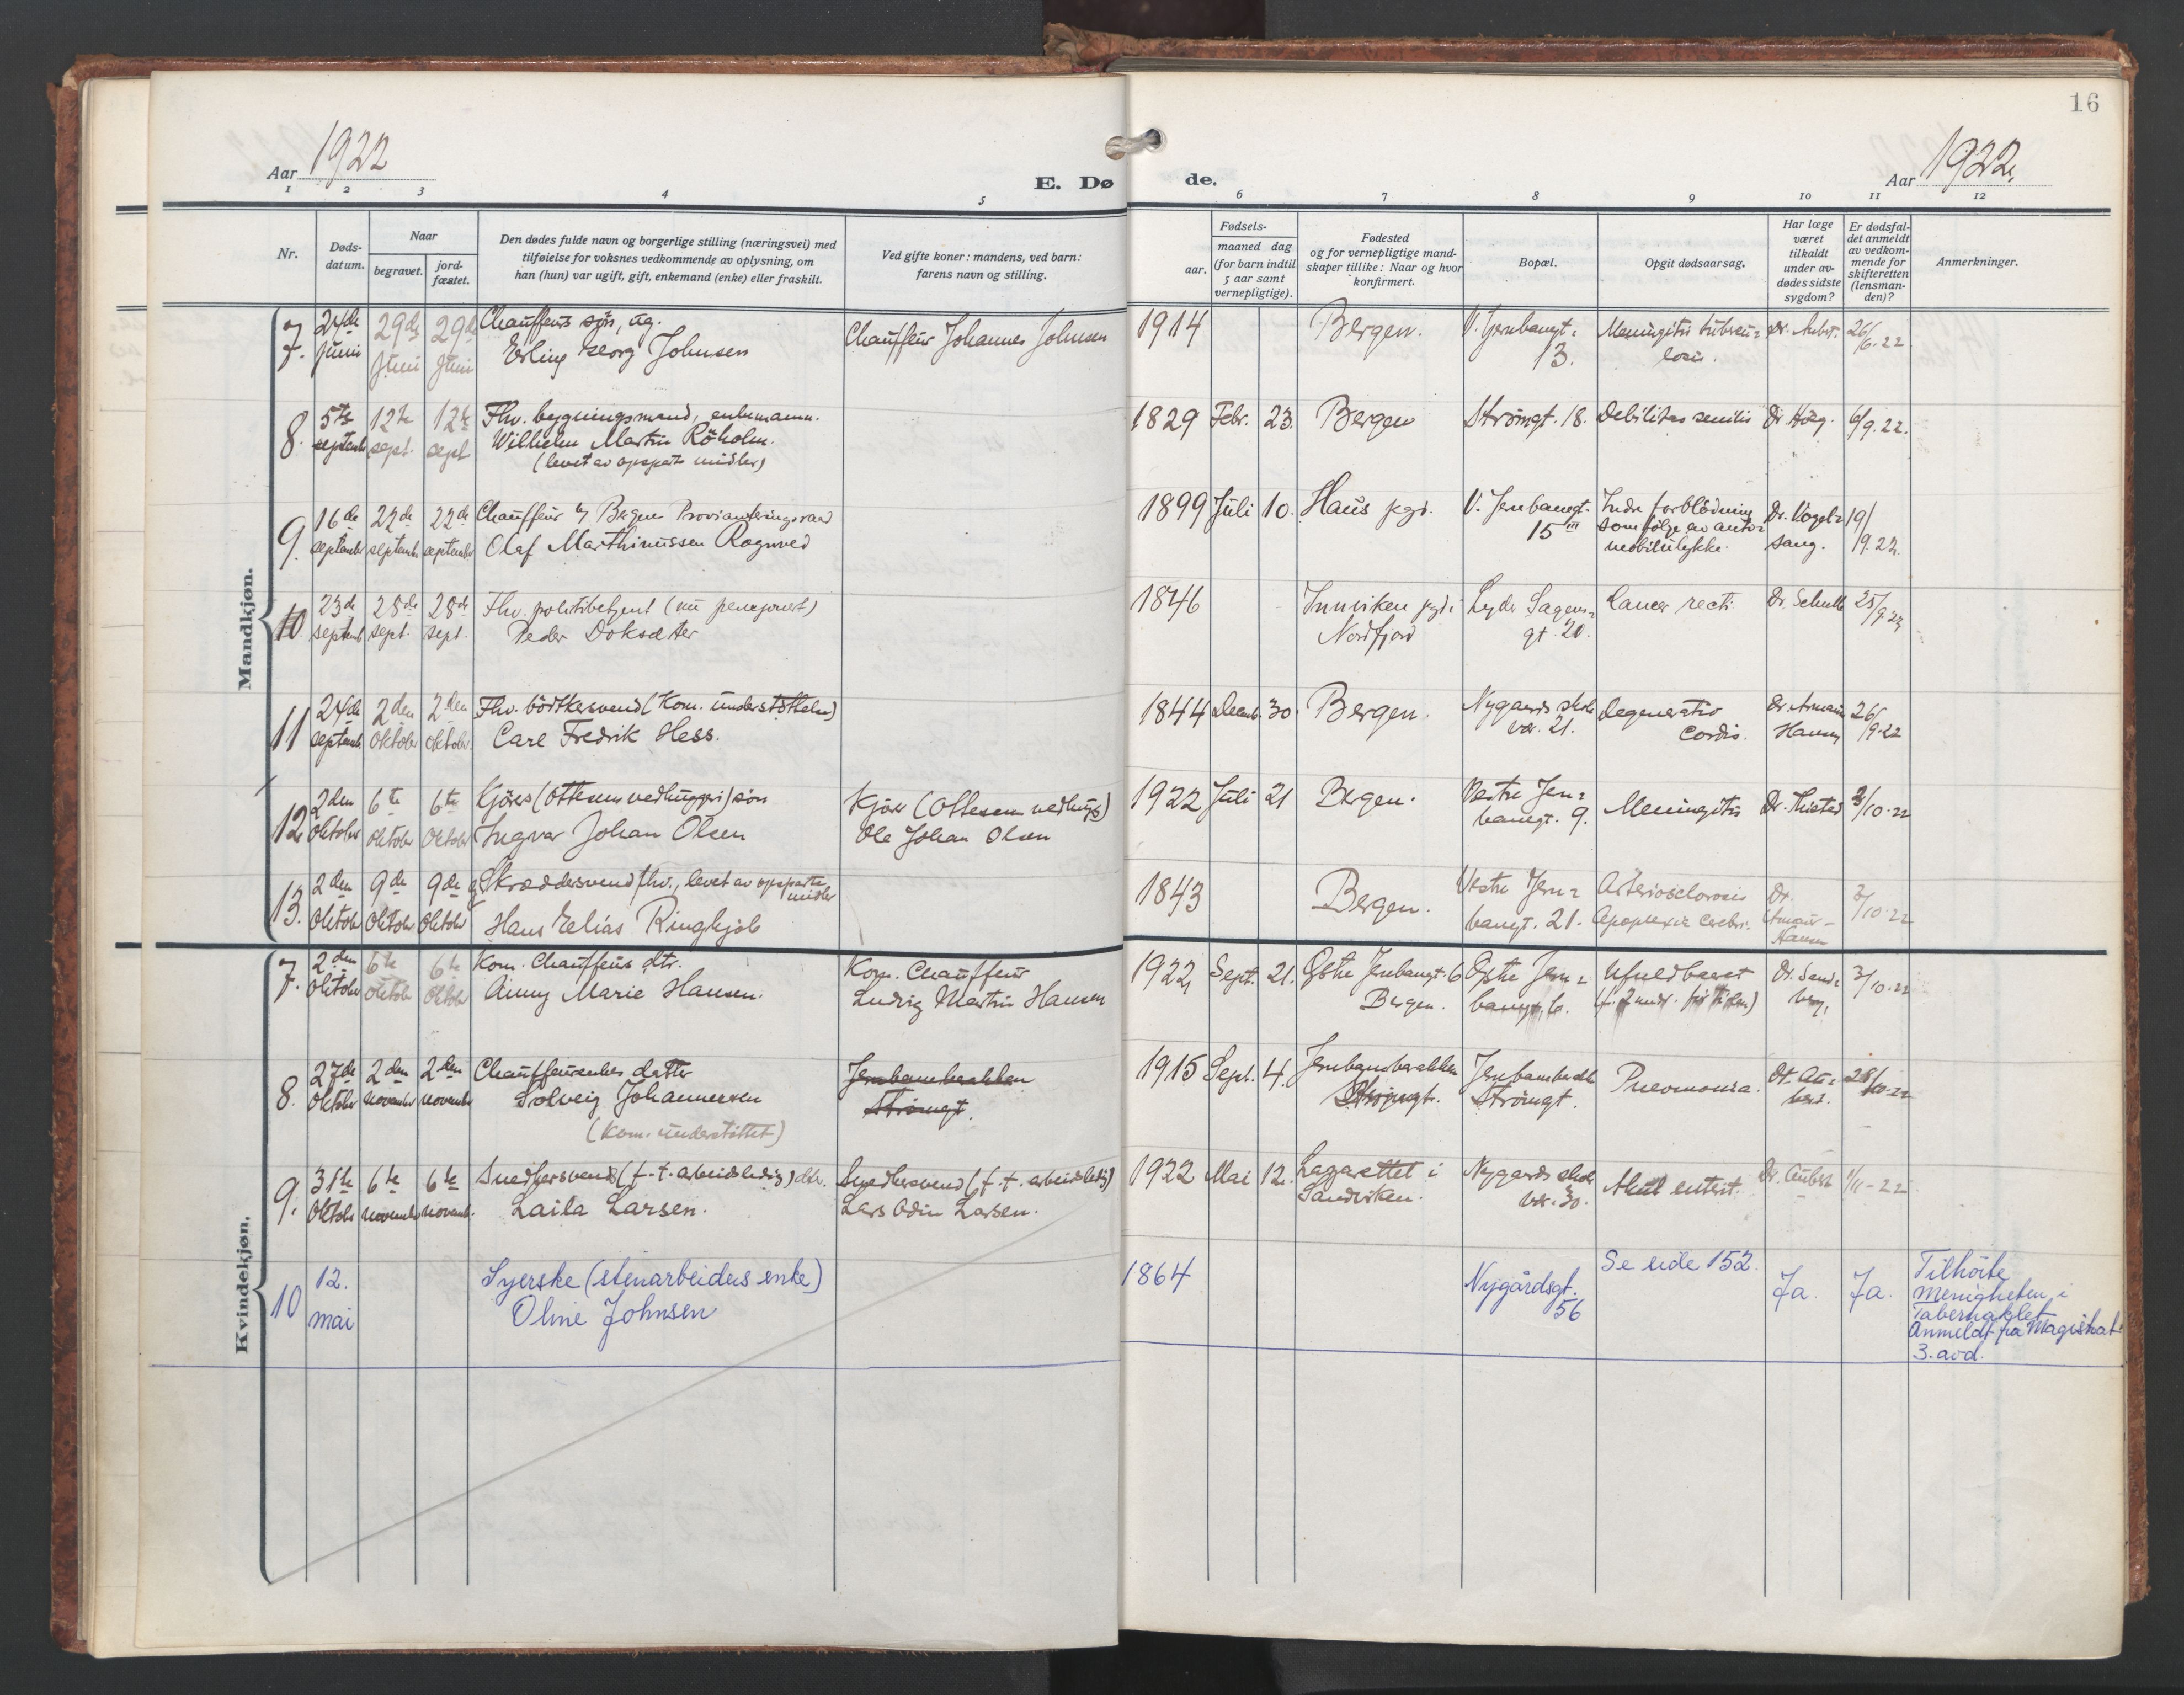 16
Aar 1922
E. Dø
de.
Aar 1922.
1 2 3 4 5 6 7 8 9 10 11 12
Nr.
Døds-
datum.
Naar
begravet.
jord-
fæstet.
Den dødes fulde navn og borgerlige stilling (næringsvei) med
tilføielse for voksnes vedkommende av oplysning, om
han (hun) var ugift, gift, enkemand (enke) eller fraskilt.
Ved gifte koner: mandens, ved barn:
farens navn og stilling.
Fødsels-
aar.
maaned dag
(for barn indtil
5 aar samt
vernepligtige).
Fødested
og for vernepligtige mand-
skaper tillike: Naar og hvor
konfirmert.
Bopæl.
Opgit dødsaarsag.
Har læge
været
tilkaldt
under av-
dødes sidste
sygdom?
Er dødsfal-
det anmeldt
av vedkom-
mende for
skifteretten
(lensman-
den)?
Anmerkninger.
Mandkjøn.
7. 24de Juni 29de Juni 29de Juni Chauffeurs søn, ug.
Erling Georg Johnsen
Chauffeur Johannes Johnsen
1914 Bergen. V. Jernbanegt. 13. Meningitis tuberculosis. Dr. Aubert. 26/6-22
8. 5te septemb. 12te sept. 12te sept Fhv. bygningsmand, enkemann.
Wilhelm Martin Röholm.
(levet av opsparte midler)
1829 Febr. 23. Bergen Strömgt. 18. Debilitas senilis Dr. Höeg. 6/9. 22.
9. 16de september 22de september 22de september Chauffeur v/ Bergen Provianteringsraad
Olaf Marthinussen Rognved
1899 Juli 10. Haus pgd. V. Jernbanegt. 15 III Indre forblödning
som fölge av auto-
mobilulykke. Dr. Vogelsang. 19/9.22.
10. 23de septemb 28de sept. 28de sept. Fhv. politibetjent (nu pensjonert)
Peder Doksæter
1846 Innviken pgd i
Nordfjord Lyder Sagens-
gt. 20. Cancer recti Dr. Schulte 25/9.22
11 24de septemb. 2den oktober 2den oktober Fhv. bödtkersvend (Kom. understöttelse)
Carl Fredrik Hess.
1844 Decemb. 30. Bergen. Nygaards skole
vær. 21. Degeneratio
cordis. Dr. Armauer
Hansen 26/9-22
12. 2den oktober 6te oktober 6te oktober Kjörers (Ottesens vedhuggeri) sön
Ingvar Johan Olsen
Kjörer (Ottesens vedhugg)
Ole Johan Olsen
1922 Juli 21 Bergen. Vestre Jern-
banegt. 9. Meningitis Dr. Thisted 3/10-22
13. 2den oktober 9de oktober 9de oktober Skræddersvend fhv., levet av opsparte midler
Hans Elias Ringkjöb
1843 Bergen. Vestre Jern-
banegt. 21. Arteriosclerosis
Apoplexia cerebri. Dr. Armauer-
Hansen 3/10-22
Kvindekjøn.
7. 2den Oktober 6te oktober 6te oktober Kom. Chauffeurs dtr.
Aimy Marie Hansen.
Kom. Chauffeur
Ludvig Martin Hansen
1922 Sept. 21. Østre Jernbanegt. 6
Bergen. Östre Jern-
banegt. 6. Ufuldbaaret
(f. 2 mndr. för tiden) Dr. Sand-
berg. 3/10-22
8. 27de Oktober 2den november 2den november Chauffeurenkes datter
Solveig Johannessen
(Kom. understöttet)
Jernbanebrakken
Strömgt.
1915 Sept. 4. Jernbanebarakken
Strömgt. Jernbanebarakk
Strömgt. Pneumonia. Dr. Au-
bert. 28/10-22
9. 31te Oktober 6te november 6te novemb. Snedkersvend (f. t. arbeidsledig) dtr.
Laila Larsen.
Snedkersvend (f. t. arbeidsledig)
Lars Odin Larsen.
1922 Mai 12. Lazarettet i
Sandviken. Nygaards skole
vær. 30. Akut enterit. Dr. Aubert 1/11-22
10 12. mai Syerske (stenarbeiders enke)
Oline Johnsen
1864 Nygårdsgt.
56 Se side 152 Ja. Ja. Tilhörte
menigheten i
Tabernaklet
Anmeldt fra Magistrat
3. avd.